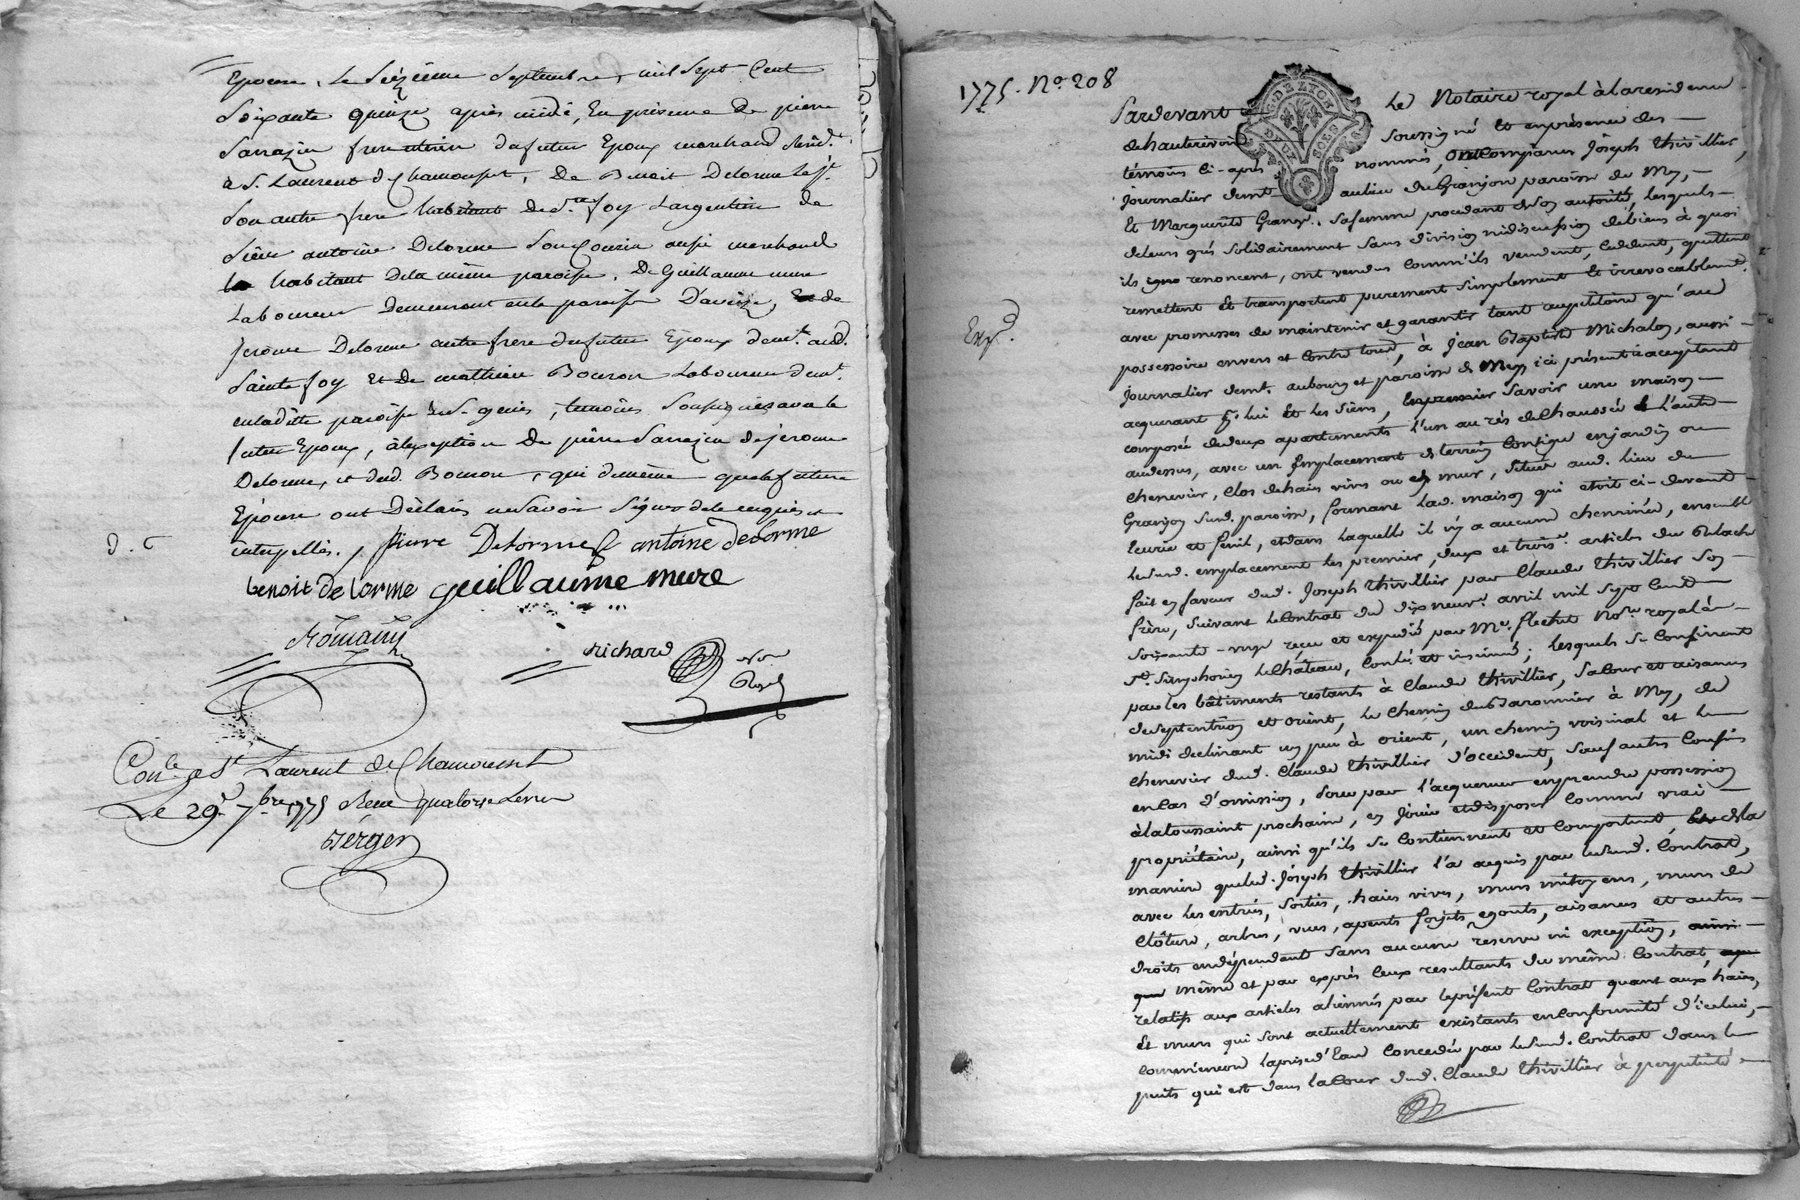 Epouse, le Seizieme Septembre, mil Sept Cent
Soixante quinze après midi, En présence de pierre
Sarrazin frere uterin du futur Epoux marchand
à St. Laurent de Chamousset, De Benoit Delorme
Son autre frere habitant de Ste foy Largentiere de
Sieur antoine Delorme Son Cousin aussi marchand
habitant dela même paroisse, De Guillaume mure
Laboureur Demeurant enla paroisse D'aveize, de
Jerome Delorme autre frere du futur Epoux demt. aud.
Sainte foy Et De mathieu Bouron Laboureur demt.
enladitte paroisse de St. genis, temoins Soussignés avec le
futur Epoux, àlexception De pierre Sarrazin de jerome
Delorme, et dud. Bouron, qui demême quelafuture
Epouse ont Déclaré ne Savoir Signer dele requis et
interpellés. pierre Delorme antoine delorme
benoit delorme guillaume mure
Romany
richard
not
Royal
Conlé à St Laurent de Chamousset
Le 29e 7bre 1775 Reçu quatorze Livres
verger
1775. No. 208
Pardevant Le Notaire royal à la residence
de hauterivoire Soussigné Et en présence des
témoins Ci-après nommés, ont Comparus Joseph thivillier,
journalier demt au lieu du Granjon paroisse de Mey,
Et Marguerite Sa femme procedant de Son autorité, lesquels
de leurs grés Solidairement Sans division ni discussion de biens à quoi
ils renoncent, ont vendus Comm'ils vendent, Cèddent, quittent
remettent Et transportent purement Simplement Et irrevocablement
avec promesses de maintenir et garantir tant au petitoire qu'au
possessoire envers et Contre tous, à Jean Baptiste Michalon, aussi
Expd.
journalier demt. au bourg et paroisse de Mey ici présent et acceptant
acquerant pr. lui Et les Siens, Savoir une maison
composée de deux apartements l'un au rés de Chaussée & L'autre
au dessus, avec un Emplacement de terrein Contigu en jardin ou
Chenevier, Clos de haies vives ou de mur, Situés aud. lieu du
Granjon Susd. paroisse, formant lad. maison qui étoit Ci-devant
Ecurie et fenil, et dans laquelle il n'y a aucune cheminée, ensemble
le Susd. emplacement les premier, deux et trois.e articles du Relaché
fait en faveur dud. Joseph thivillier par Claude thivillier Son
frère, Suivant le Contrat du dix neuf avril mil Sept Cent
Soixante-neuf reçu et expedié par Me. flechet Nore. royal à
St. Simphorien le Château, Contlé et insinué; lesquels Se Confinent
par les bâtiments restants à Claude thivillier, Sa Cour et aisances
de Septentrion et orient, le chemin du Baronnier à Mey, de
midi declinant un peu à orient, un chemin voisinal et le
Chenevier dud. Claude thivillier d'occident, Sauf autres Confins
en Cas d'omission, Pour par l'acquereur en prendre possession
à la toussaint prochaine, en jouir et disposer Comme vrai
propriétaire, ainsi qu'ils Se Contiennent et Comportent, de la
maniere que led. Joseph thivillier l'a acquis par le Susd. Contrat,
avec les entrées, Sorties, haies vives, murs mitoyens, murs de
Clôture, arbres, vues, apents forjets egouts, aisances et autres
droits en dépendent Sans aucune reserve ni exception, ainsi
que même et par exprès Ceux resultants du même Contrat,
relatifs aux articles alienés par le présent Contrat quant aux haies,
Et murs qui Sont actuellement existants en Conformité d'icelui,
Comm'encore la prise d'Eau Concedée par le Susd. Contrat dans le
puits qui est dans la Cour dud. Claude thivillier à perpetuité